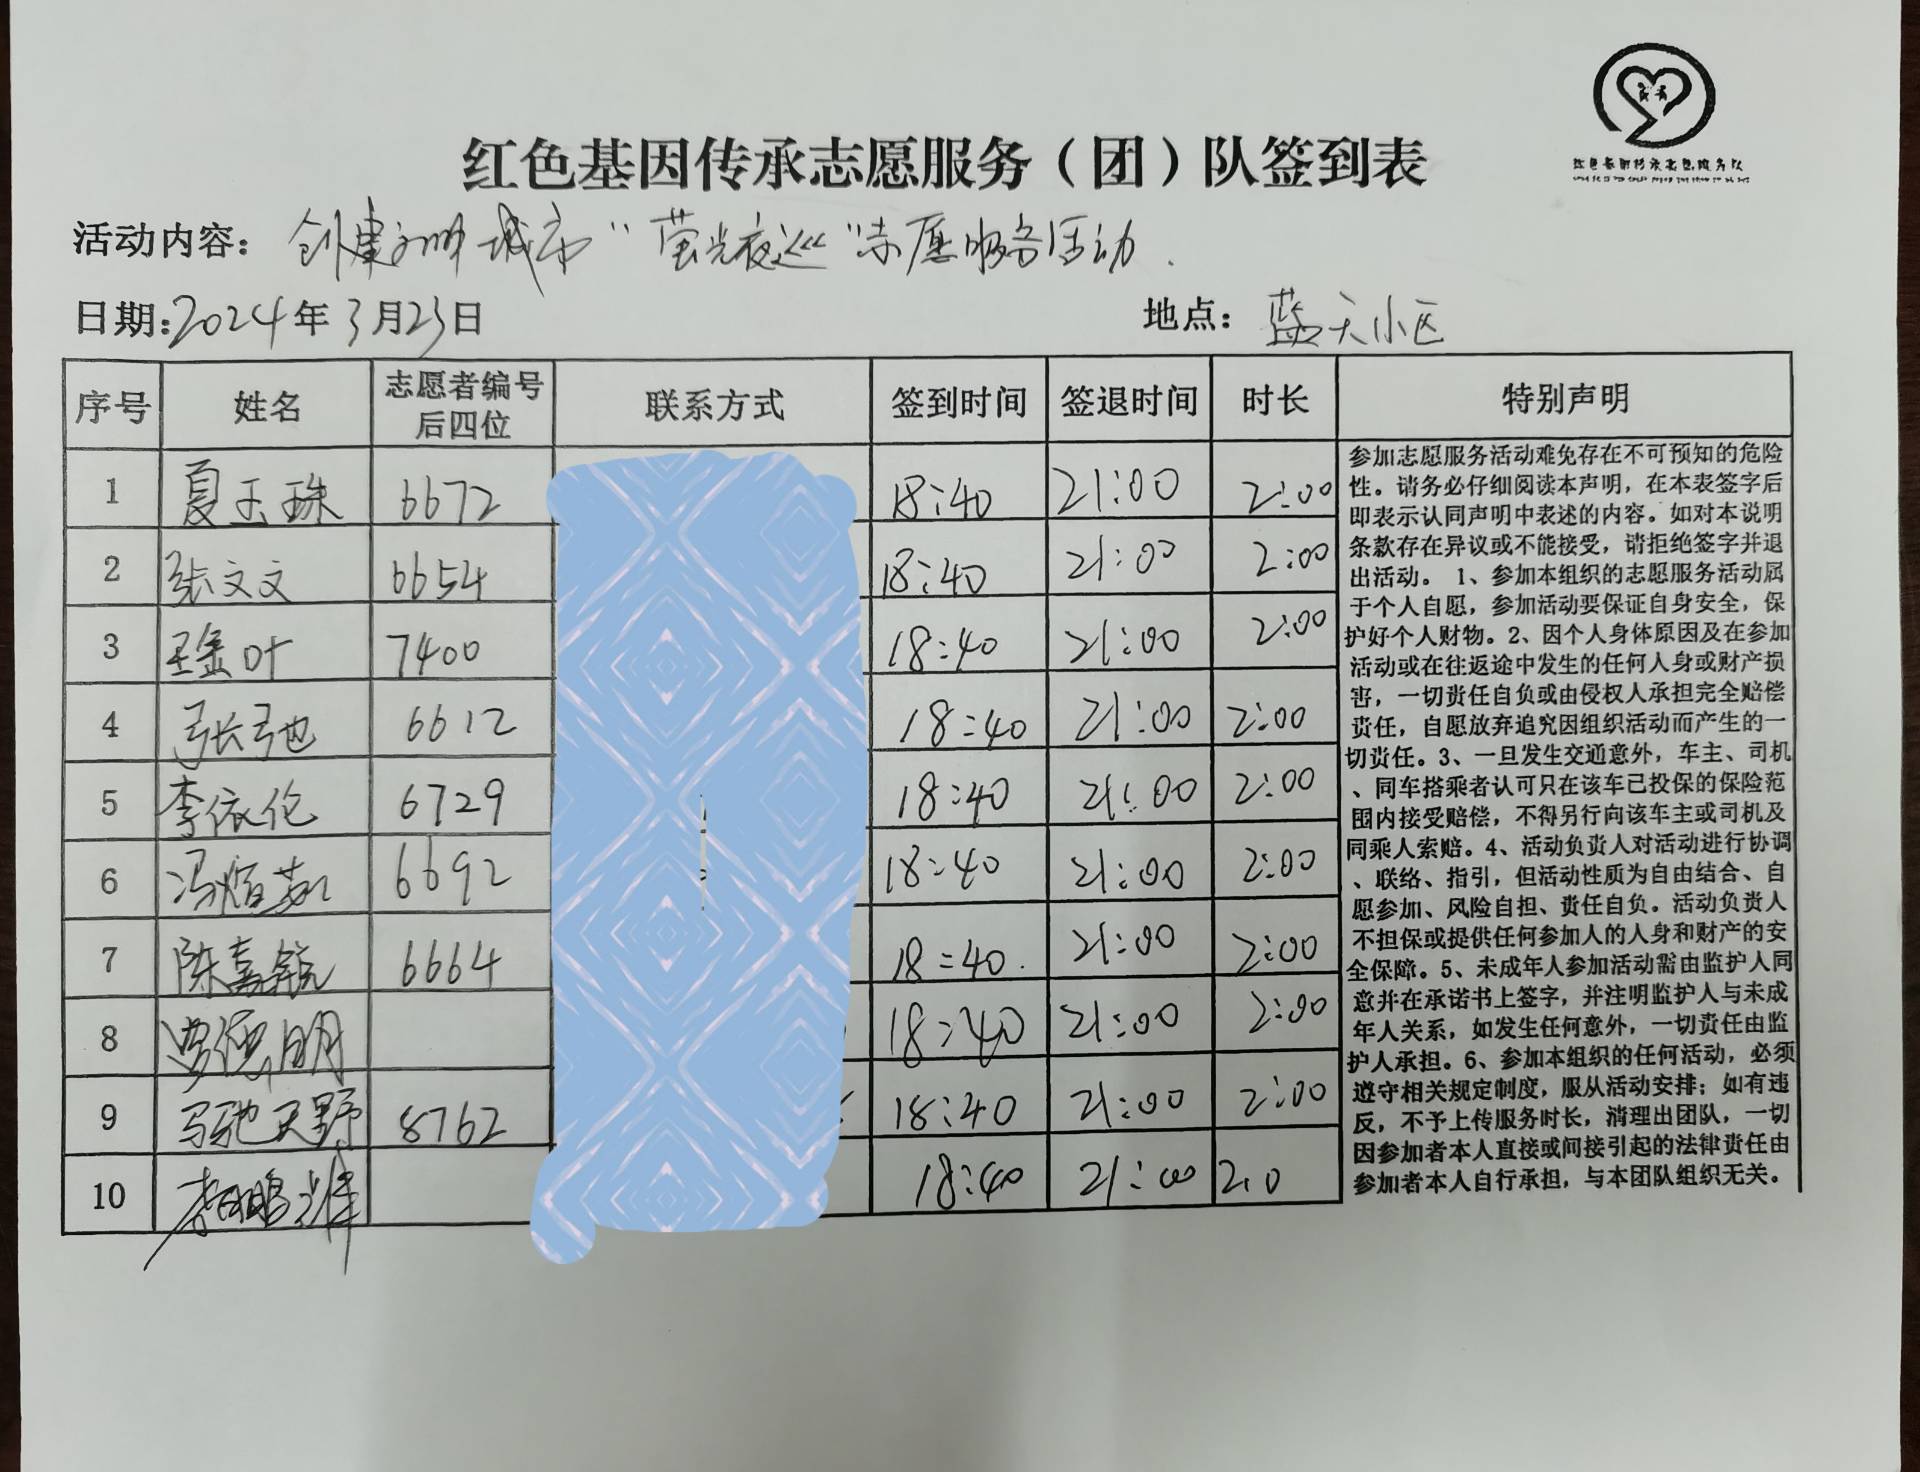 红色基因传承志愿服务（团）队签到表
活动内容：创建文明城市“萤光夜巡”志愿服务活动.
日期:2024年3月23日 地点：蓝天小区
序号 姓名 志愿者编号后四位 联系方式 签到时间 签退时间 时长 特别声明
1 夏玉珠 6672 18:40 21:00 2:00
2 张文文 6654 18:40 21:00 2:00
3 王金叶 7400 18:40 21:00 2:00
4 张弛 6612 18:40 21:00 2:00
5 李依伦 6729 18:40 21:00 2:00
6 冯 6692 18:40 21:00 2:00
7 陈嘉锐 6664 18:40. 21:00 2:00
8 德明 18:40 21:00 2:00
9 马驰天野 8762 18:40 21:00 2:00
10 李鹏辉 18:40 21:00 2.0
参加志愿服务活动难免存在不可预知的危险
性。请务必仔细阅读本声明，在本表签字后
即表示认同声明中表述的内容。如对本说明
条款存在异议或不能接受，请拒绝签字并退
出活动。 1、参加本组织的志愿服务活动属
于个人自愿，参加活动要保证自身安全，保
护好个人财物。2、因个人身体原因及在参加
活动或在往返途中发生的任何人身或财产损
害，一切责任自负或由侵权人承担完全赔偿
责任，自愿放弃追究因组织活动而产生的一
切责任。3、一旦发生交通意外，车主、司机
、同车搭乘者认可只在该车已投保的保险范
围内接受赔偿，不得另行向该车主或司机及
同乘人索赔。4、活动负责人对活动进行协调
、联络、指引，但活动性质为自由结合、自
愿参加、风险自担、责任自负。活动负责人
不担保或提供任何参加人的人身和财产的安
全保障。5、未成年人参加活动需由监护人同
意并在承诺书上签字，并注明监护人与未成
年人关系，如发生任何意外，一切责任由监
护人承担。6、参加本组织的任何活动，必须
遵守相关规定制度，服从活动安排；如有违
反，不予上传服务时长，清理出团队，一切
因参加者本人直接或间接引起的法律责任由
参加者本人自行承担，与本团队组织无关。